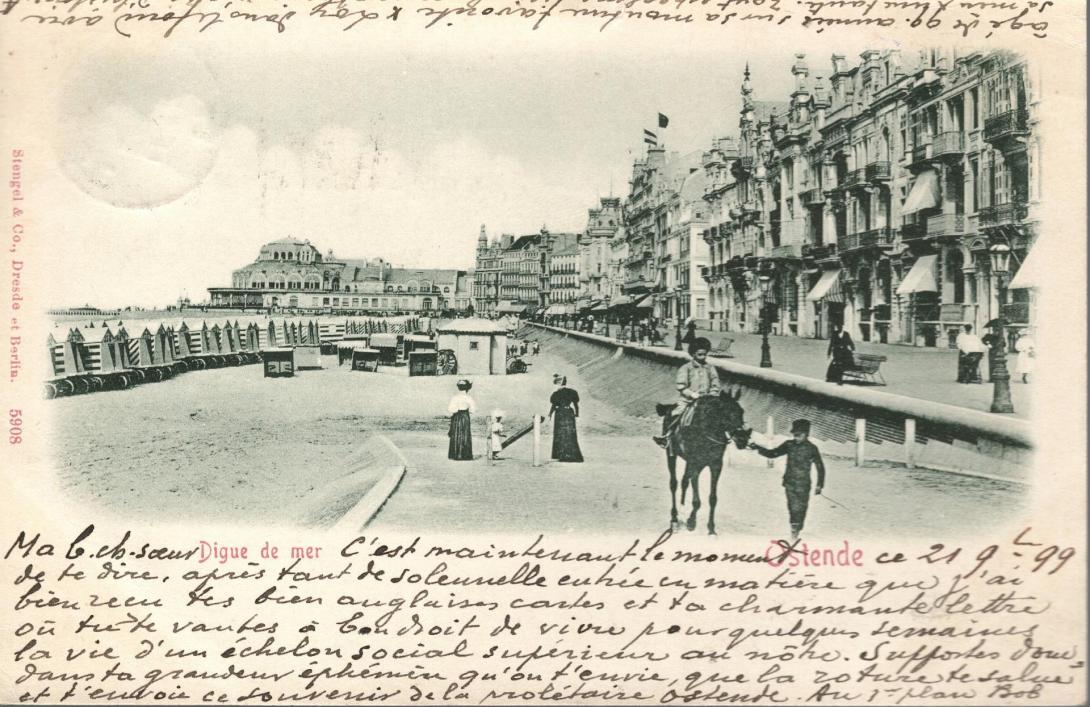 Stengel & Co., Dresde et Berlin. 5908
Digue de mer
Ostende
Ma b. ch. sœur C'est maintenant le moment ce 21 9bre 99
de te dire, après tant de solennelle entrée en matière que j'ai
bien recu tes bien anglaises cartes et ta charmante lettre
où tu te vantes à bon droit de vivre pour quelques semaines
la vie d'un échelon social supérieur au nôtre. Supportes donc,
dans ta grandeur éphémère qu'on t'envie, que la roture te salue
et t'envoie ce souvenir de la prolétaire Ostende. Au 1r plan Bob
âgé de 90 année sur sa monture
avec favorite x Loy dans